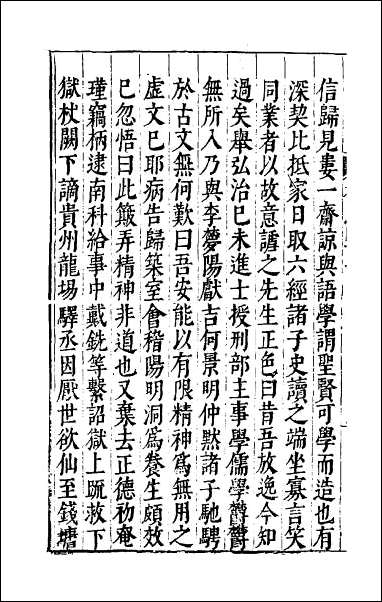 信歸見婁一齋諒與語學謂聖賢可學而造也有
深契比抵家日取六經諸子史讀之端坐寡言笑
同業者以故意謔之先生正色曰昔吾放逸今知
過矣舉弘治已未進士授刑部主事學儒學欝欝
無所入乃與李夢陽獻吉何景明仲默諸子馳騁
於古文無何歎曰吾安能以有限精神為無用之
虛文已耶病告歸築室會稽陽明洞為養生頗效
已忽悟曰此簸弄精神非道也又棄去正德初奄
瑾竊柄逮南科給事中戴銑等繫詔獄上疏救下
獄杖闕下謫貴州龍場驛丞因厭世欲仙至錢塘